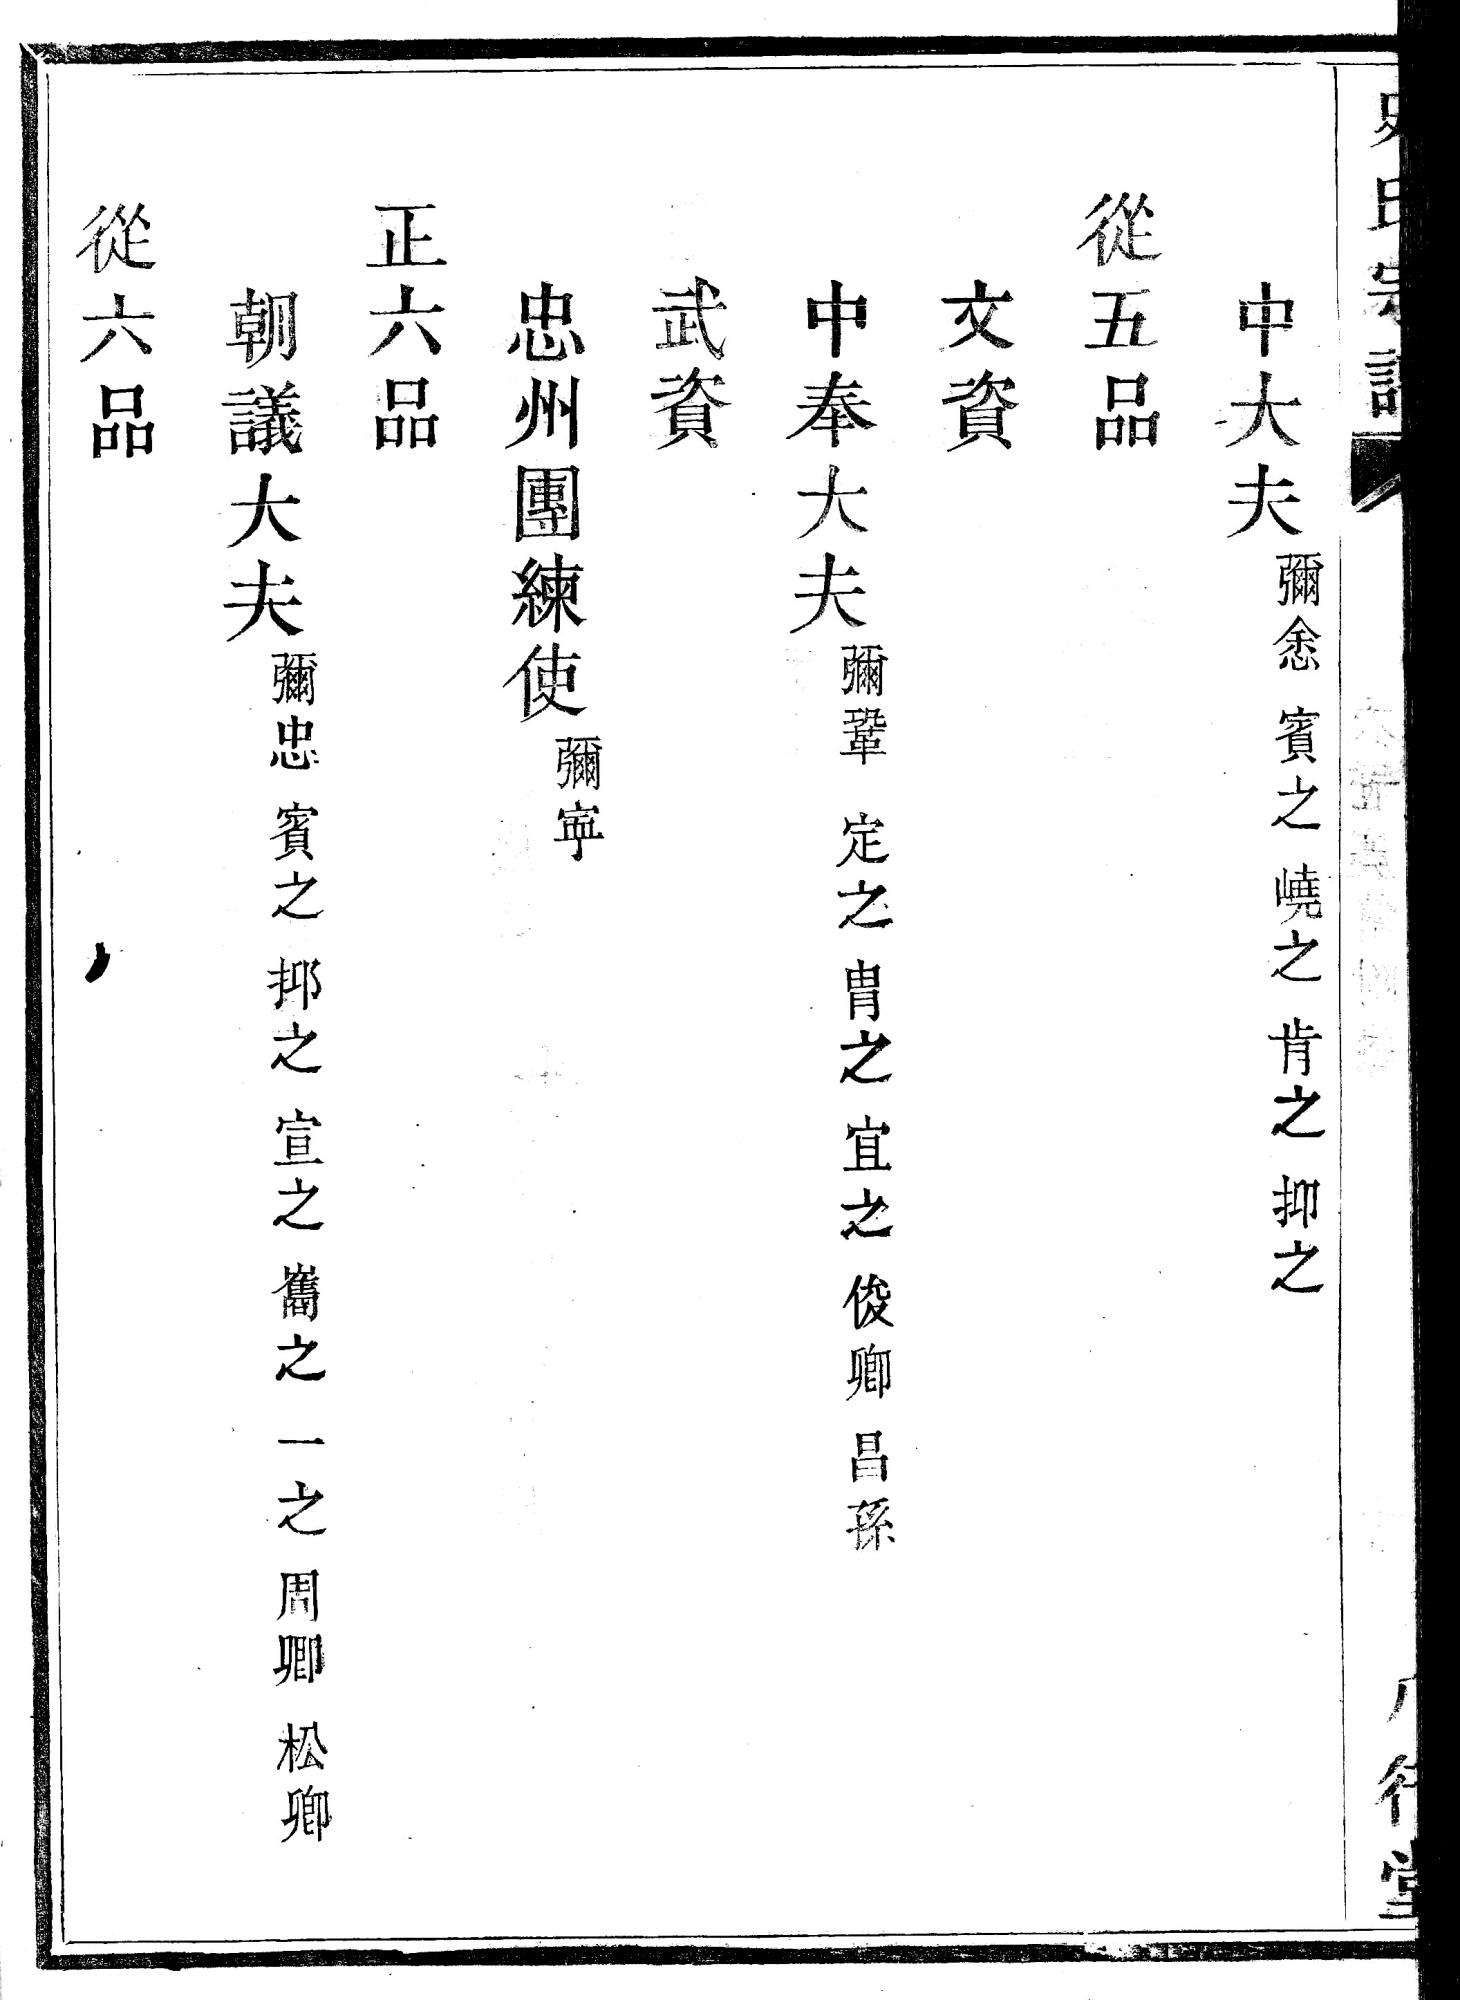 史氏宗譜 八行堂
中大夫 彌悆 賓之 嶢之 肯之 抑之
從五品
文資
中奉大夫 彌鞏 定之 胄之 宜之 俊卿 昌孫
武資
忠州團練使 彌寧
正六品
朝議大夫 彌忠 賓之 抑之 宣之 巂之 一之 周卿 松卿
從六品